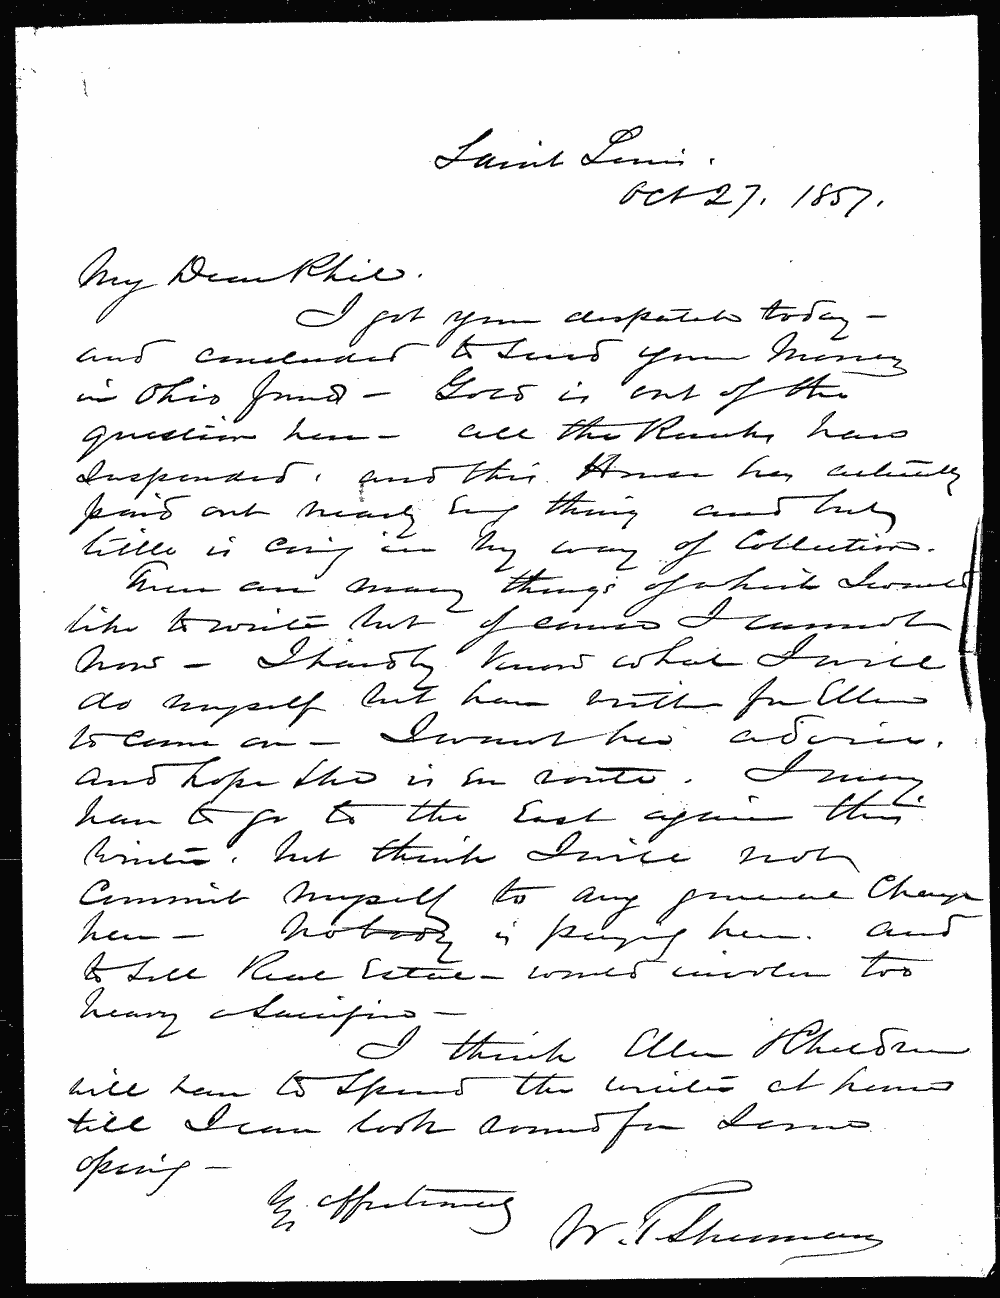 Saint Louis.
Oct 27. 1857.
My Dear Phil.
I got your despatch today -
and concluded to send your money
in Ohio funds - Gold is out of the
question here - all the Banks have
suspended, and this House has actually
paid out nearly every thing and but
little is coming in by way of Collection.
There are many things of which I would
like to write but of course I cannot
now - I hardly know what I will
do myself but have written for Ellen
to come on - I want her advice.
and hope she is en route. I may
have to go to the East again this
winter, but think I will not
commit myself to any general change
here - Nobody is paying here. and
to sell Real Estate - would involve too
heavy a Sacrifice -
I think Ellen & Children
will have to spend the winter at home
till I can look round for some
opening -
Yr affectionately
W. T. Sherman